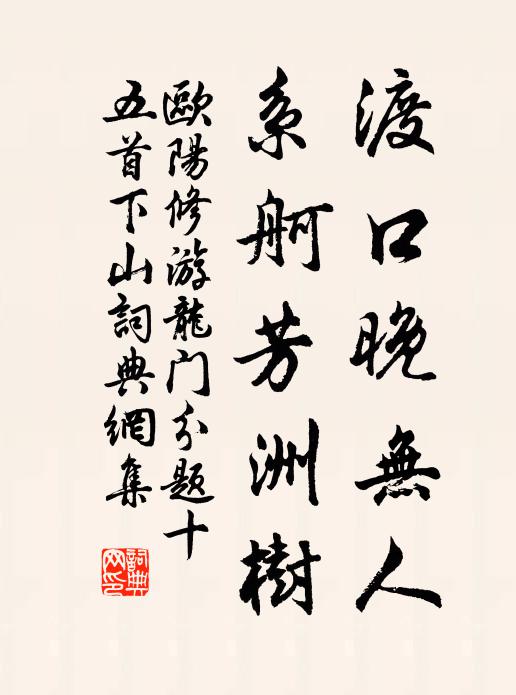 渡口晚無人
系舸芳洲樹
歐陽修游龍门分题十
五首下山詞典網集
詞典
网印